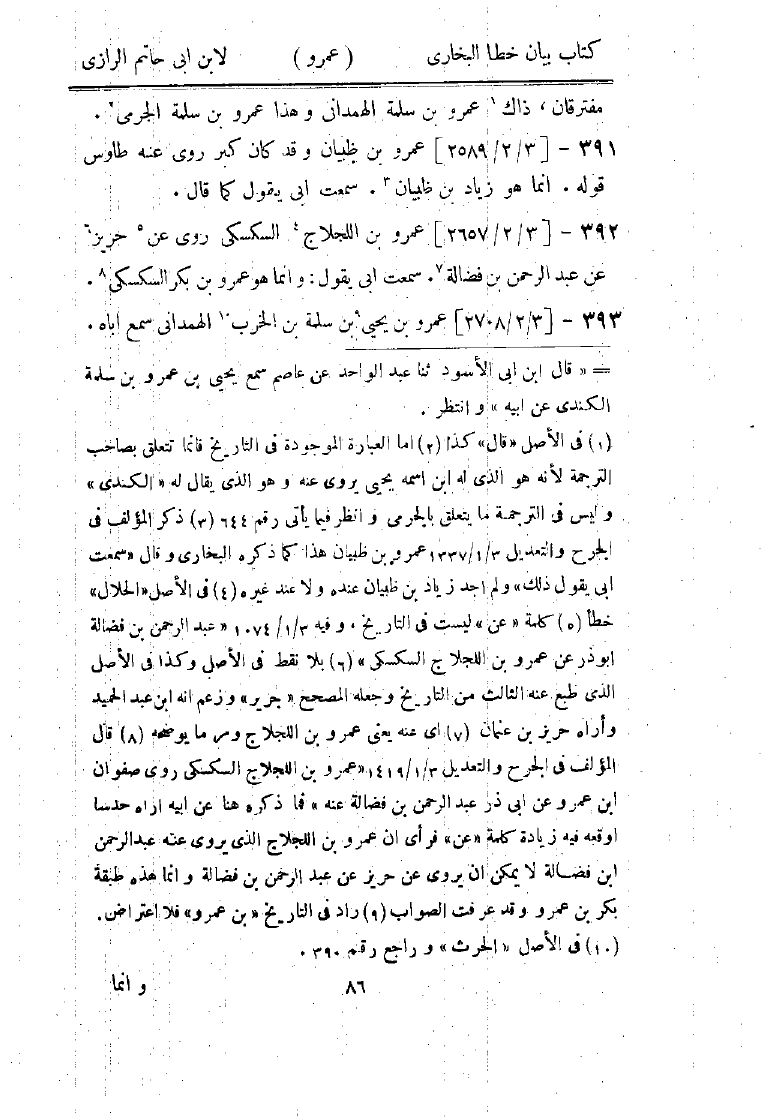 كتاب بيان خطا البخارى (عمرو) لابن ابى حاتم الرازى
مفترقان، ذاك ١ عمرو بن سلمة الهمدانى وهذا عمرو بن سلمة الجرمى ٢ .
٣٩١ – [٣/٢/٢٥٨٩] عمرو بن ظبيان وقد كان كبر روى عنه طاوس
قوله . انما هو زياد بن ظبيان ٣ . سمعت ابى يقول كما قال .
٣٩٢ – [٣/٢/٢٦٥٧] عمرو بن اللجلاج ٤ السكسكى روى عن ٥ حريز ٦
عن عبد الرحمن بن فضالة ٧. سمعت ابى يقول: وانما هو عمرو بن بكر السكسكى ٨ .
٣٩٣ – [٣/٢/٢٧٠٨] عمرو بن يحيى ٩ بن سلمة بن الخرب ١٠ الهمدانى سمع اباه.
= « قال ابن ابى الأسود ثنا عبد الواحد عن عاصم سمع يحيى بن عمرو بن سلمة
الكندى عن ابيه » وانتظر .
(١) فى الأصل «قال» كذا (٢) اما العبارة الموجودة فى التاريخ فانما تتعلق بصاحب
الترجمة لأنه هو الذى له ابن اسمه يحيى يروى عنه وهو الذى يقال له «الكندى»
وليس فى الترجمة ما يتعلق بالجرمى وانظر فيما يأتى رقم ٦٤٤ (٣) ذكر المؤلف فى
الجرح والتعديل ١٣٣٧/١/٣ عمرو بن ظبيان هذا كما ذكره البخارى وقال «سمعت
ابى يقول ذلك» ولم اجد زياد بن ظبيان عنده ولا عند غيره (٤) فى الأصل «الحلال»
خطأ (٥) كلمة «عن» ليست فى التاريخ، وفيه ١٠٧٤/١/٣ «عبد الرحمن بن فضالة
ابوذر عن عمرو بن اللجلاج السكسكى» (٦) بلا نقط فى الأصل وكذا فى الأصل
الذى طبع عنه الثالث من التاريخ وجعله المصحح «جرير» وزعم انه ابن عبد الحميد
وأراه حريز بن عثمان (٧) اى عنه يعنى عمرو بن اللجلاج ومر ما يوضحه (٨) قال
المؤلف فى الجرح والتعديل ١٤١٩/١/٣ «عمرو بن اللجلاج السكسكى روى صفوان
ابن عمرو عن ابى ذر عبد الرحمن بن فضالة عنه» فما ذكره هنا عن ابيه اراه حدسا
اوقعه فيه زيادة كلمة «عن» فرأى ان عمرو بن اللجلاج الذى يروى عنه عبدالرحمن
ابن فضالة لا يمكن ان يروى عن حريز عن عبد الرحمن بن فضالة وانما هذه طبقة
بكر بن عمرو وقد عرفت الصواب (٩) زاد فى التاريخ «بن عمرو» فلا اعتراض.
(١٠) فى الأصل «الحرث» وراجع رقم ٣٩٠ .
٨٦ وانما